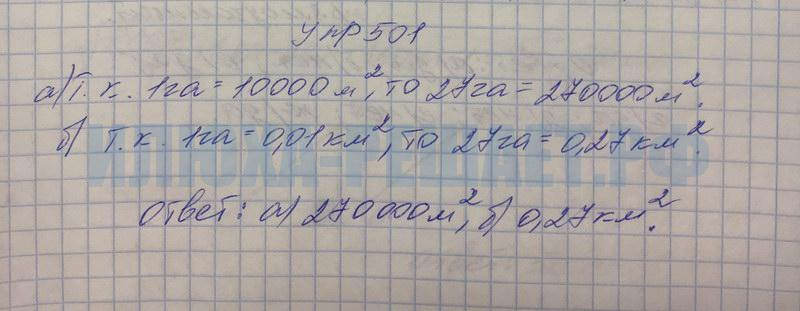 Упр 501
а) Т. к. 1га = 10000 м², то 27га = 270000 м².
б) Т. к. 1га = 0,01 км², то 27га = 0,27 км².
ИЛЮХА-РЕШАЕТ.РФ
Ответ: а) 270000 м², б) 0,27 км².